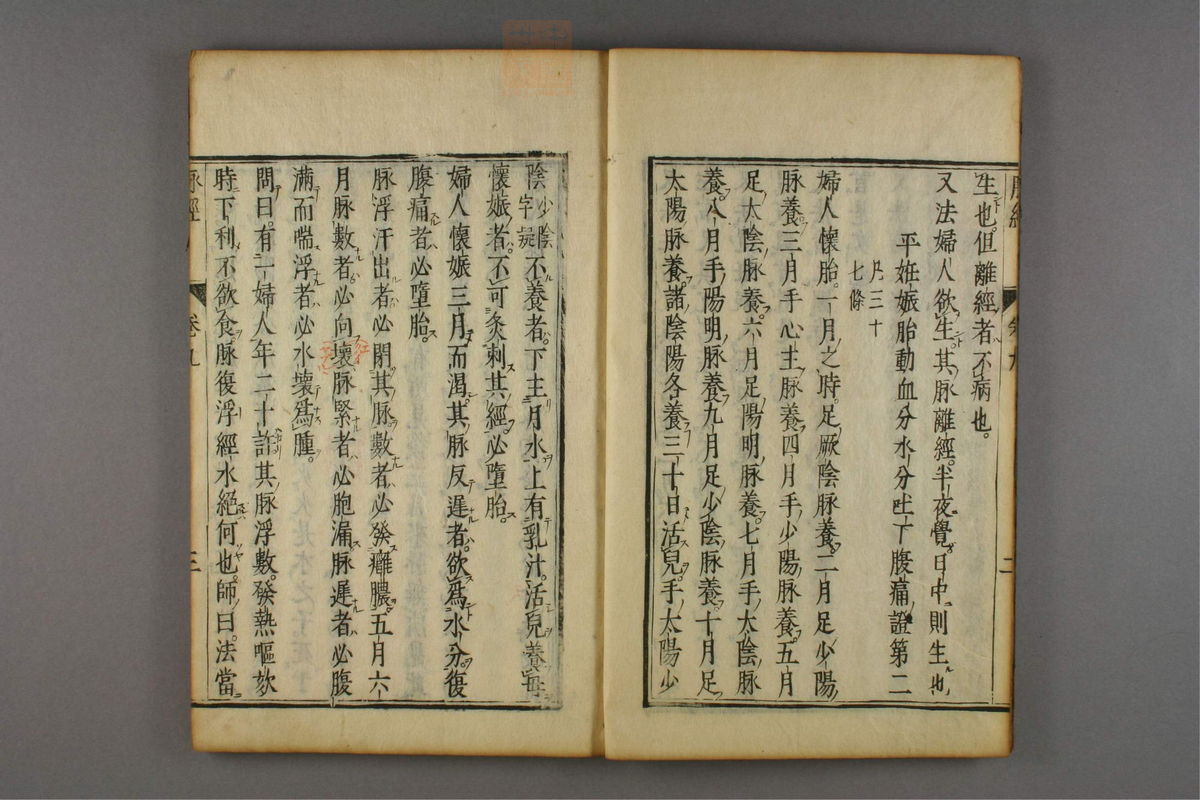 生也但離經者不病也
又法婦人欲生其脉離經半夜覺日中則生也
平妊娠胎動血分水分吐下腹痛證第二
凡三十
七條
婦人懷胎一月之時足厥陰脉養二月足少陽
脉養三月手心主脉養四月手少陽脉養五月
足太陰脉養六月足陽明脉養七月手太陰脉
養八月手陽明脉養九月足少陰脉養十月足
太陽脉養諸陰陽各養三十日活兒手太陽少
陰少陰字疑不養者下主月水上有乳汁活兒養母
懷娠者不可灸刺其經必墮胎
婦人懷娠三月而渴其脉反遲者欲爲水分復
腹痛者必墮胎
脉浮汗出者必閉其脉數者必發癰膿五月六
月脉數者必向壞脉緊者必胞漏脉遲者必腹
滿而喘浮者必水壞爲腫
問曰有一婦人年二十許其脉浮數發熱嘔欬
時下利不欲食脉復浮經水絕何也師曰法當
脉經 卷九 三